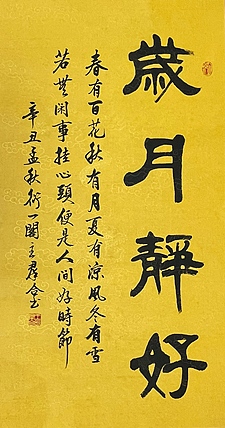 歲月靜好
春有百花秋有月夏有涼風冬有雪
若無闲事挂心頭便是人间好時節
辛丑孟秋